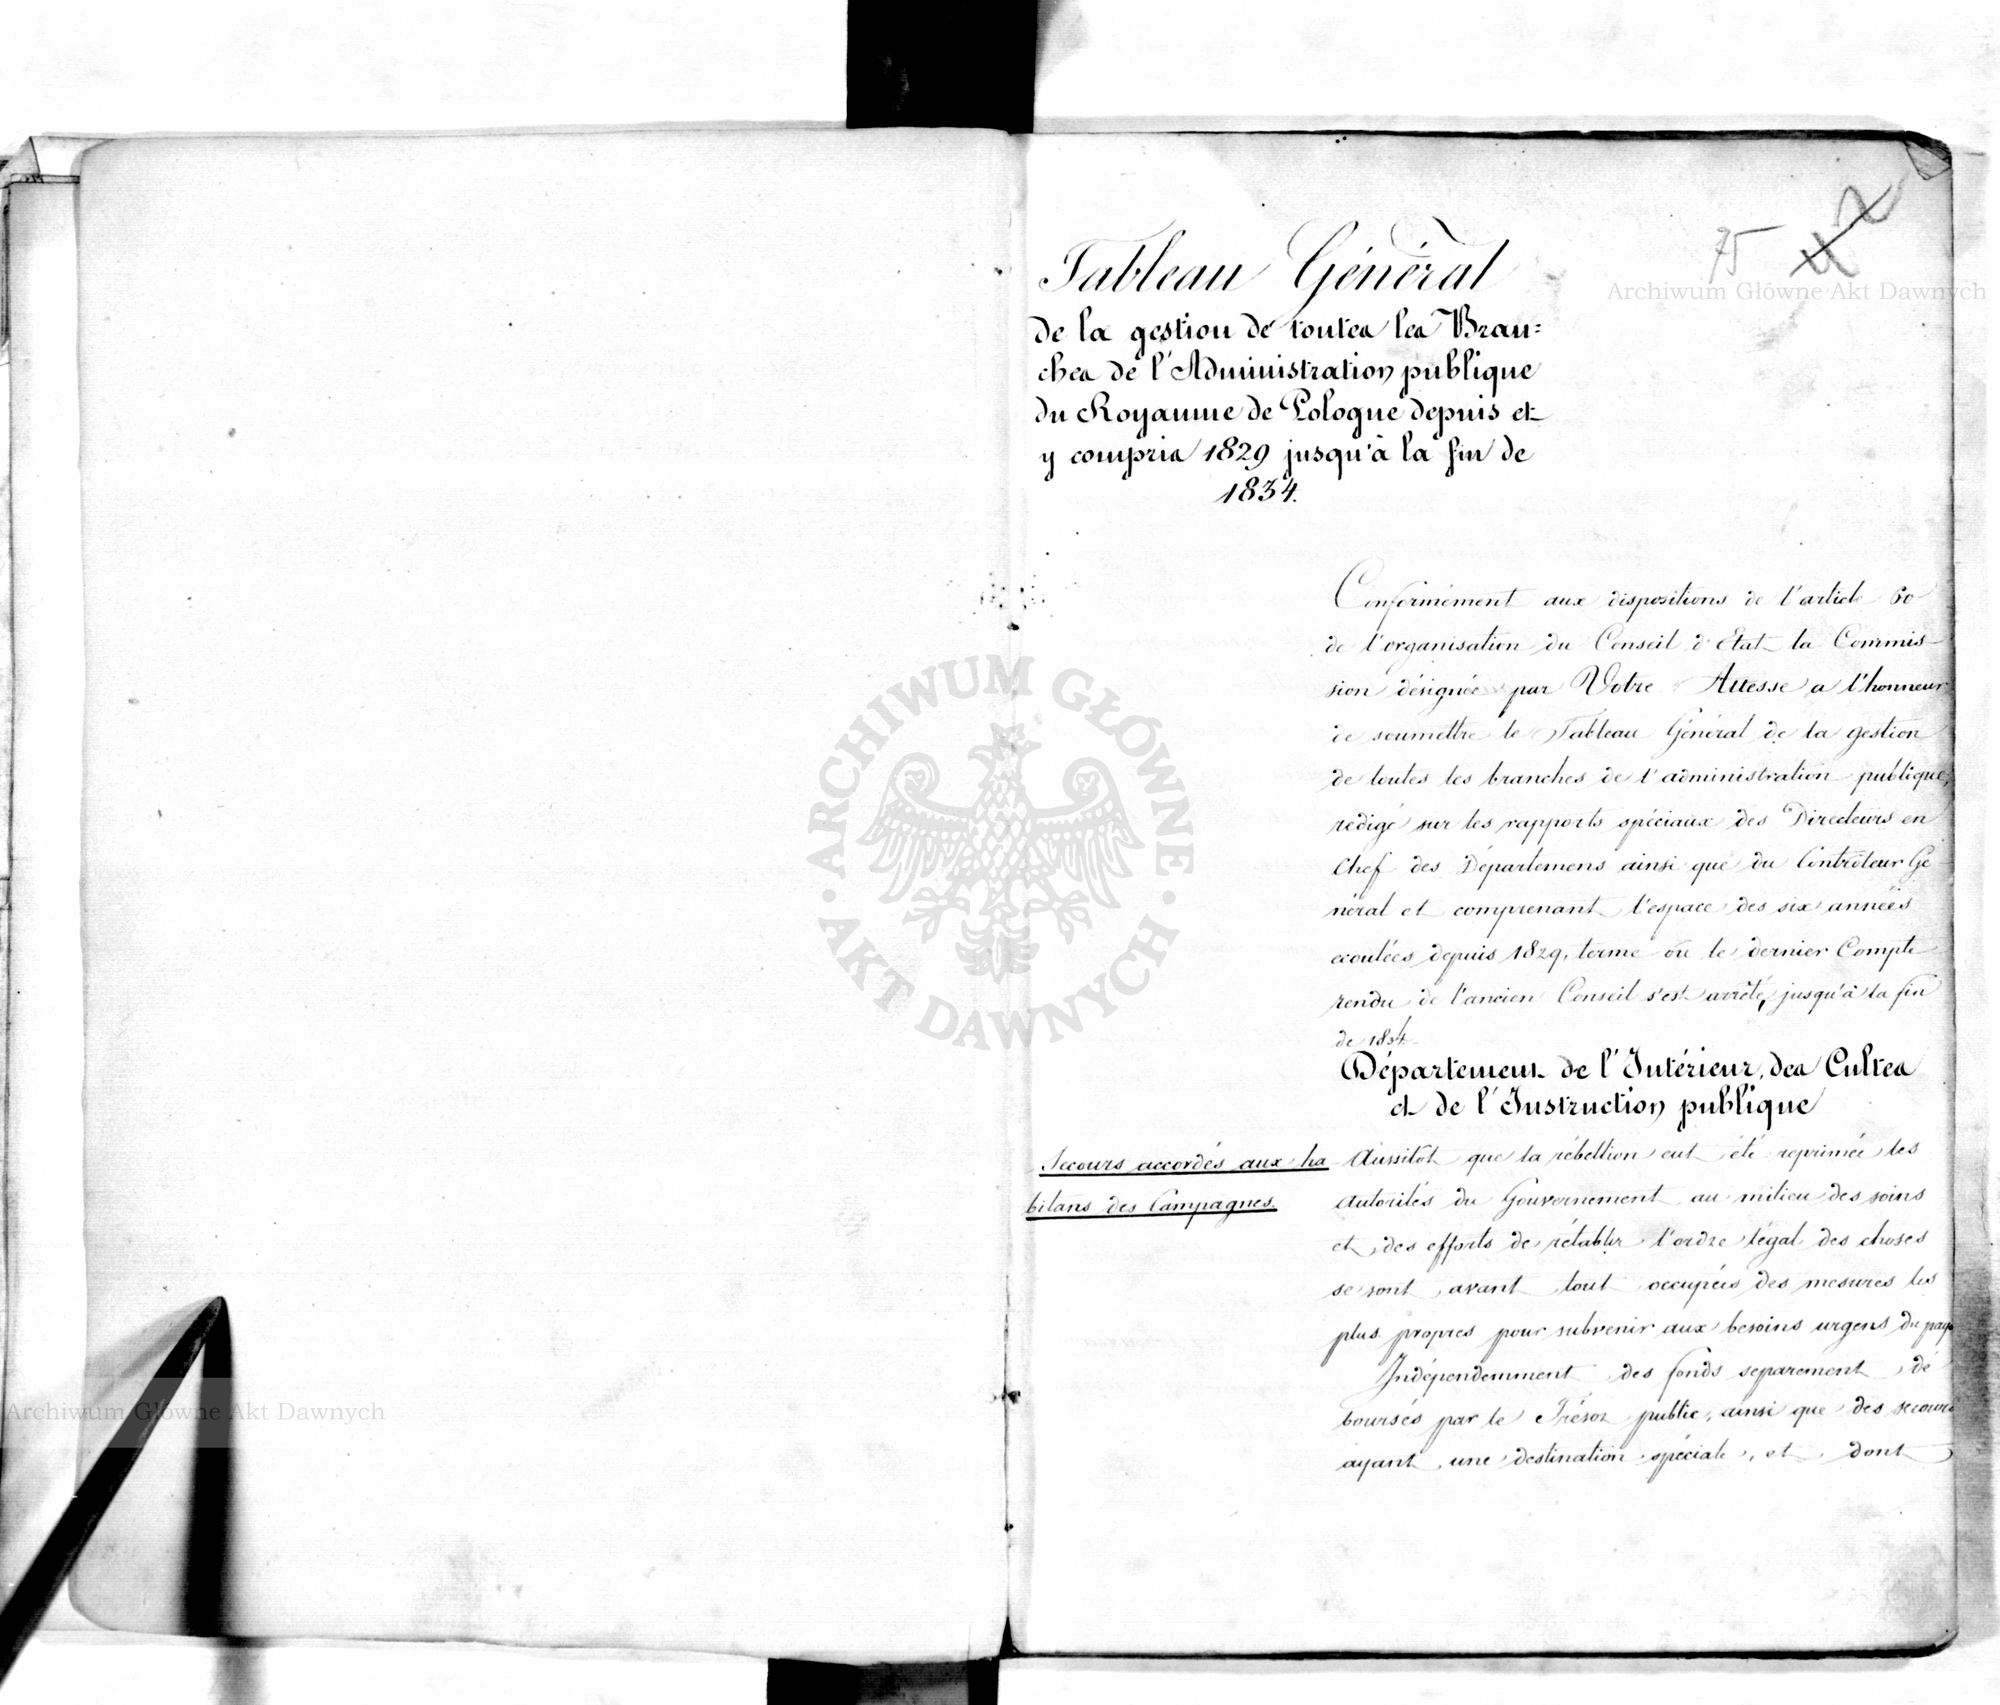 75 42
Tableau Général
de la gestion de toutes les Bran=
ches de l'Administration publique
du Royaume de Pologne depuis et
y compris 1829 jusqu'à la fin de
1834.
Conformément aux dispositions de l'article 60
de l'organisation du Conseil d'Etat la Commis-
sion désignée par Votre Altesse a l'honneur
de soumettre le Tableau Général de la gestion
de toutes les branches de l'administration publique,
redigé sur les rapports spéciaux des Directeurs en
Chef des Départemens ainsi que du Contrôleur Gé-
néral et comprenant l'espace des six années
ecoulées depuis 1829, terme où le dernier Compte
rendu de l'ancien Conseil s'est arrêté, jusqu'à la fin
de 1834.
Département de l'Intérieur, des Cultes
et de l'Instruction publique
Secours accordés aux ha
bitans des Campagnes.
Aussitôt que la rébellion eut été reprimée les
Autorités du Gouvernement au milieu des soins
et des efforts de rétablir l'ordre légal des choses
se sont avant tout occupées des mesures les
plus propres pour subvenir aux besoins urgens du pays
Indépendemment des fonds separement dé
boursés par le Trésor public, ainsi que des secours
ayant une destination spéciale, et dont
Archiwum Główne Akt Dawnych
ARCHIWUM GŁÓWNE
AKT DAWNYCH
Archiwum Główne Akt Dawnych